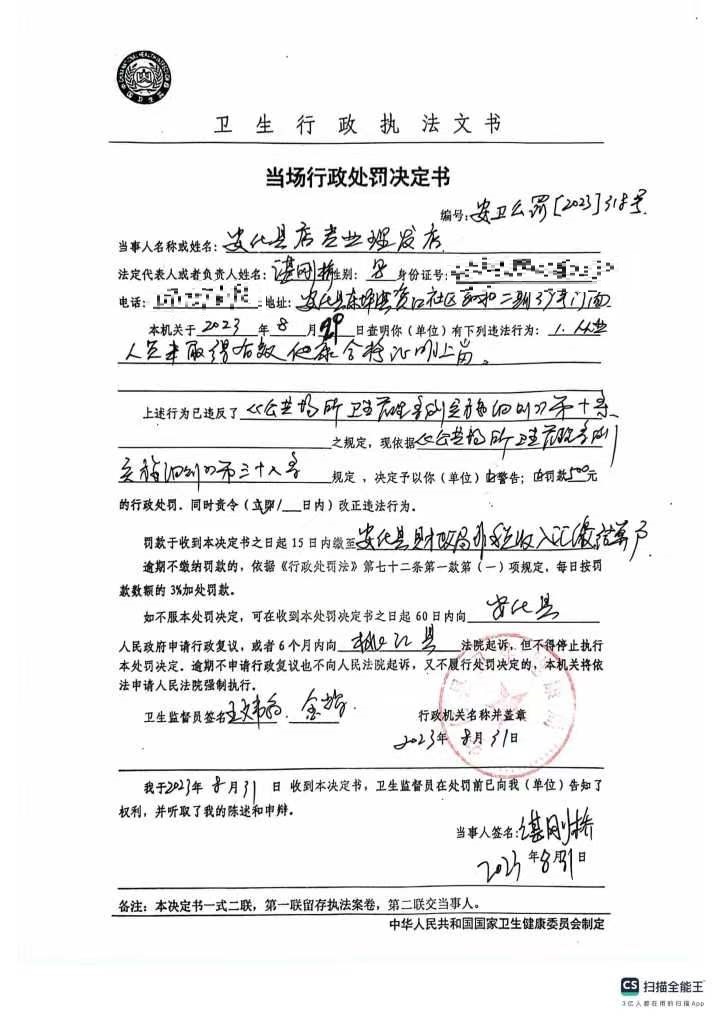 卫生行政执法文书
当场行政处罚决定书
编号：安卫公罚[2023]318号
当事人名称或姓名：安化县店专业理发店
法定代表人或者负责人姓名：谌刚桥性别：男 身份证号：
电话： 地址：安化县东坪镇 社区 门面
本机关于 2023 年 8 月 29 日查明你（单位）有下列违法行为：1.从业
人员未取得有效健康合格证明上岗。
上述行为已违反了《公共场所卫生管理条例实施细则》第十条
之规定，现依据《公共场所卫生管理条例
实施细则》第三十八条 规定，决定予以你（单位）警告；罚款500元
的行政处罚。同时责令（立即/ 日内）改正违法行为。
罚款于收到本决定书之日起 15 日内缴至安化县财政局非税收入汇缴结算户
逾期不缴纳罚款的，依据《行政处罚法》第七十二条第一款第（一）项规定，每日按罚
款数额的 3%加处罚款。
如不服本处罚决定，可在收到本处罚决定书之日起 60 日内向 安化县
人民政府申请行政复议，或者 6 个月内向 桃江县 法院起诉，但不得停止执行
本处罚决定。逾期不申请行政复议也不向人民法院起诉，又不履行处罚决定的，本机关将依
法申请人民法院强制执行。
卫生监督员签名 行政机关名称并盖章
2023年 8月 31日
我于2023年 8月31 日 收到本决定书，卫生监督员在处罚前已向我（单位）告知了
权利，并听取了我的陈述和申辩。
当事人签名：谌刚桥
2023 年 8月31日
备注：本决定书一式二联，第一联留存执法案卷，第二联交当事人。
中华人民共和国国家卫生健康委员会制定
CS 扫描全能王
3亿人都在用的扫描App